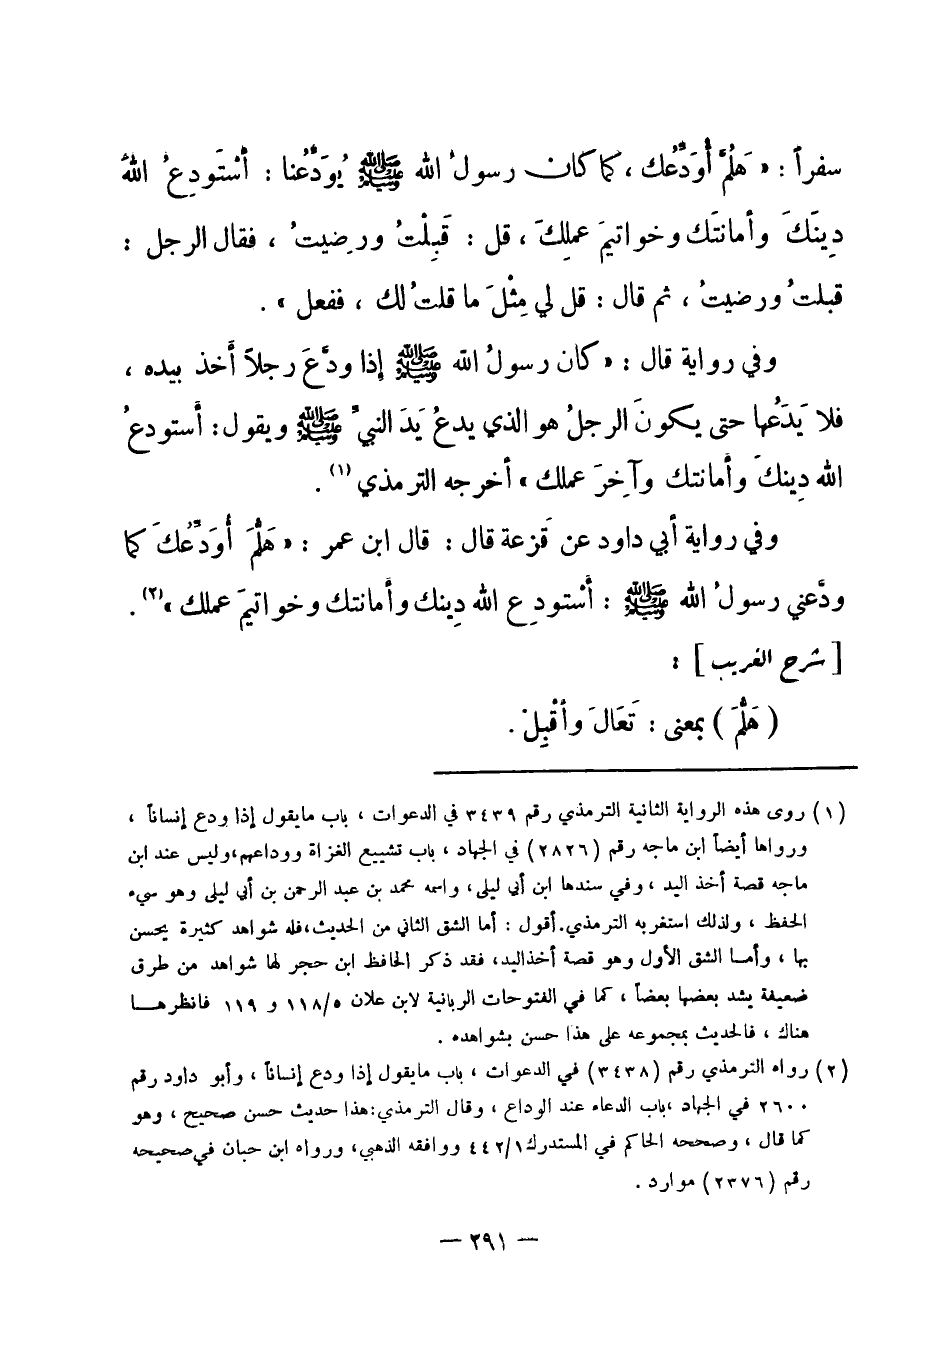 سفراً : « هَلُمَّ أُوَدِّعُك ، كما كان رسولُ الله ﷺ يُوَدِّعُنا : أَسْتَودِعُ اللهُ
دِينَكَ وأمانتَك وخواتيمَ عملِكَ ، قل : قَبِلْتُ ورضِيتُ ، فقال الرجل :
قبلتُ ورضيتُ ، ثم قال : قل لي مِثْلَ ما قلتُ لك ، ففعل » .
وفي رواية قال : « كان رسولُ الله ﷺ إذا ودَّعَ رجلاً أخذ بيده ،
فلا يَدَعُها حتى يكونَ الرجلُ هو الذي يدعُ يَدَ النبيِّ ﷺ ويقول : أستودعُ
الله دِينكَ وأمانتك وآخِرَ عملك » أخرجه الترمذي (١) .
وفي رواية أبي داود عن قَزعة قال : قال ابن عمر : « هَلُمَّ أُوَدِّعُكَ كما
ودَّعني رسولُ الله ﷺ : أَسْتودِع الله دِينك وأمانتك وخواتيمَ عملك » (٢) .
[ شرح الغريب ] :
( هَلُمَّ ) بمعنى : تَعَالَ وأقْبِلْ .
(١) روى هذه الرواية الثانية الترمذي رقم ٣٤٣٩ في الدعوات ، باب مايقول إذا ودع إنساناً ،
ورواها أيضاً ابن ماجه رقم (٢٨٢٦) في الجهاد ، باب تشييع الغزاة ووداعهم،وليس عند ابن
ماجه قصة أخذ اليد ، وفي سندها ابن أبي ليلى، واسمه محمد بن عبد الرحمن بن أبي ليلى وهو سيء
الحفظ ، ولذلك استغربه الترمذي.أقول : أما الشق الثاني من الحديث،فله شواهد كثيرة يحسن
بها ، وأما الشق الأول وهو قصة أخذاليد، فقد ذكر الحافظ ابن حجر لها شواهد من طرق
ضعيفة يشد بعضها بعضاً ، كما في الفتوحات الربانية لابن علان ١١٨/٥ و ١١٩ فانظرها
هناك ، فالحديث بمجموعه على هذا حسن بشواهده .
(٢) رواه الترمذي رقم (٣٤٣٨) في الدعوات ، باب مايقول إذا ودع إنساناً ، وأبو داود رقم
٢٦٠٠ في الجهاد ،باب الدعاء عند الوداع ، وقال الترمذي:هذا حديث حسن صحيح ، وهو
كما قال ، وصححه الحاكم في المستدرك ٤٤٢/١ ووافقه الذهبي، ورواه ابن حبان في صحيحه
رقم (٢٣٧٦) موارد .
— ٢٩١ —